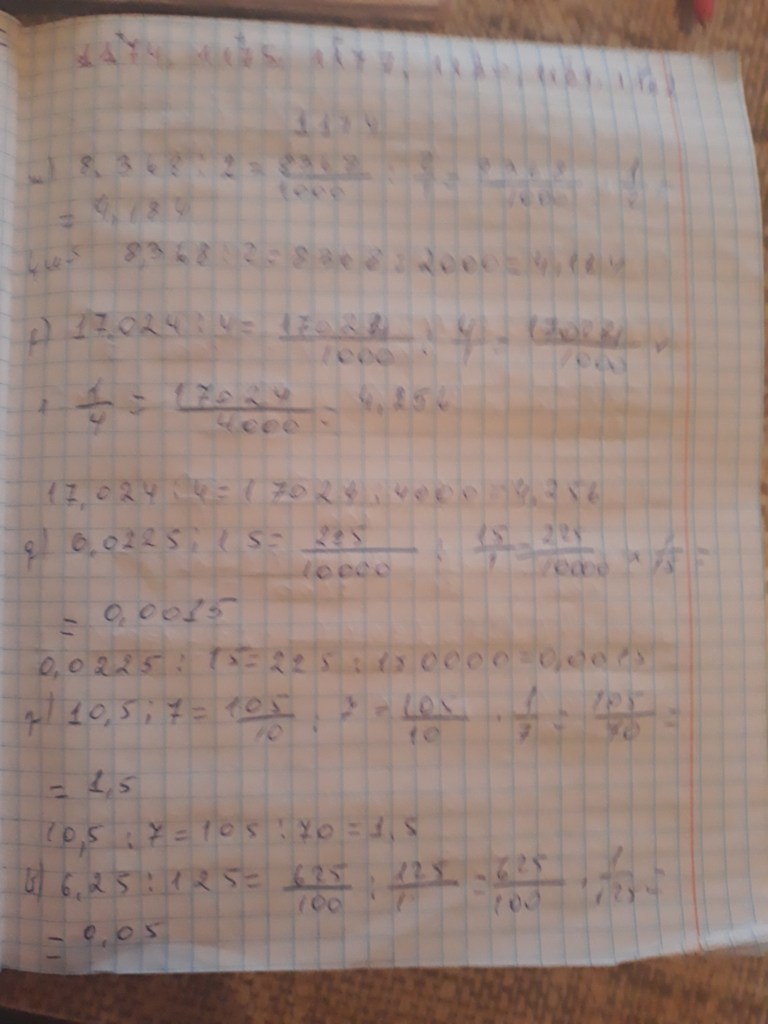 1174, 1175, 1177,
1184
8,368 : 2 = 8368/1000 : 2/1 = 8368/1000 · 1/2 =
= 4,184
8,368 : 2 = 8368 : 2000 = 4,184
17,024 : 4 = 17024/1000 : 4/1 = 17024/1000 ·
· 1/4 = 17024/4000 = 4,256
17,024 : 4 = 17024 : 4000 = 4,256
g) 0,0225 : 15 = 225/10000 : 15/1 = 225/10000 · 1/15 =
= 0,0015
0,0225 : 15 = 225 : 150000 = 0,0015
10,5 : 7 = 105/10 : 7 = 105/10 · 1/7 = 105/70 =
= 1,5
10,5 : 7 = 105 : 70 = 1,5
6,25 : 125 = 625/100 : 125/1 = 625/100 · 1/125 =
= 0,05